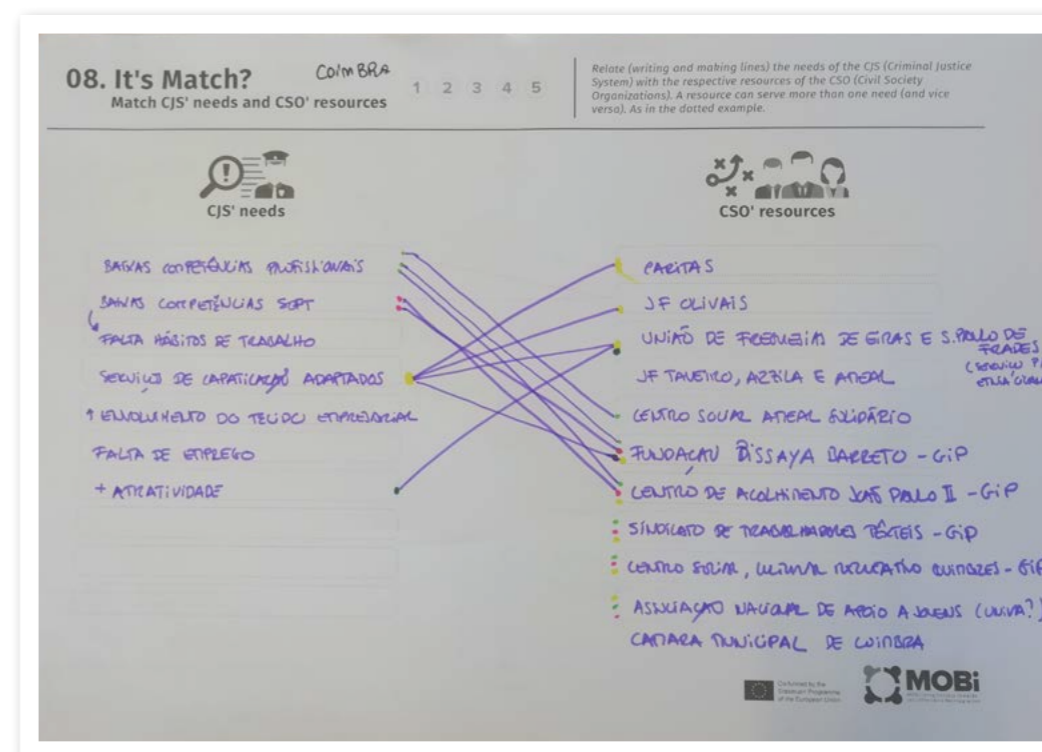 08. It's Match?
COIMBRA
Match CJS' needs and CSO' resources
1 2 3 4 5
Relate (writing and making lines) the needs of the CJS (Criminal Justice
System) with the respective resources of the CSO (Civil Society
Organizations). A resource can serve more than one need (and vice
versa). As in the dotted example.
CJS' needs
BAIXAS COMPETÊNCIAS PROFISSIONAIS
BAIXAS COMPETÊNCIAS SOFT
FALTA HÁBITOS DE TRABALHO
SERVIÇOS DE CAPACITAÇÃO ADAPTADOS
↑ ENVOLVIMENTO DO TECIDO EMPRESARIAL
FALTA DE EMPREGO
+ ATRATIVIDADE
CSO' resources
CARITAS
JF OLIVAIS
UNIÃO DE FREGUESIAS DE EIRAS E S. PAULO DE
FRADES
JF TAVEIRO, AMEAL
CENTRO SOCIAL AMEAL SOLIDÁRIO
FUNDAÇÃO BISSAYA BARRETO - GiP
CENTRO DE ACOLHIMENTO JOÃO PAULO II - GiP
SINDICATO DE TRABALHADORES TÊXTEIS - GiP
CENTRO SOCIAL, CULTURAL RECREATIVO QUIMBRES - GiP
ASSOCIAÇÃO NACIONAL DE APOIO A JOVENS (UNIVA?)
CAMARA MUNICIPAL DE COIMBRA
Co-funded by the
Erasmus+ Programme
of the European Union
MOBi